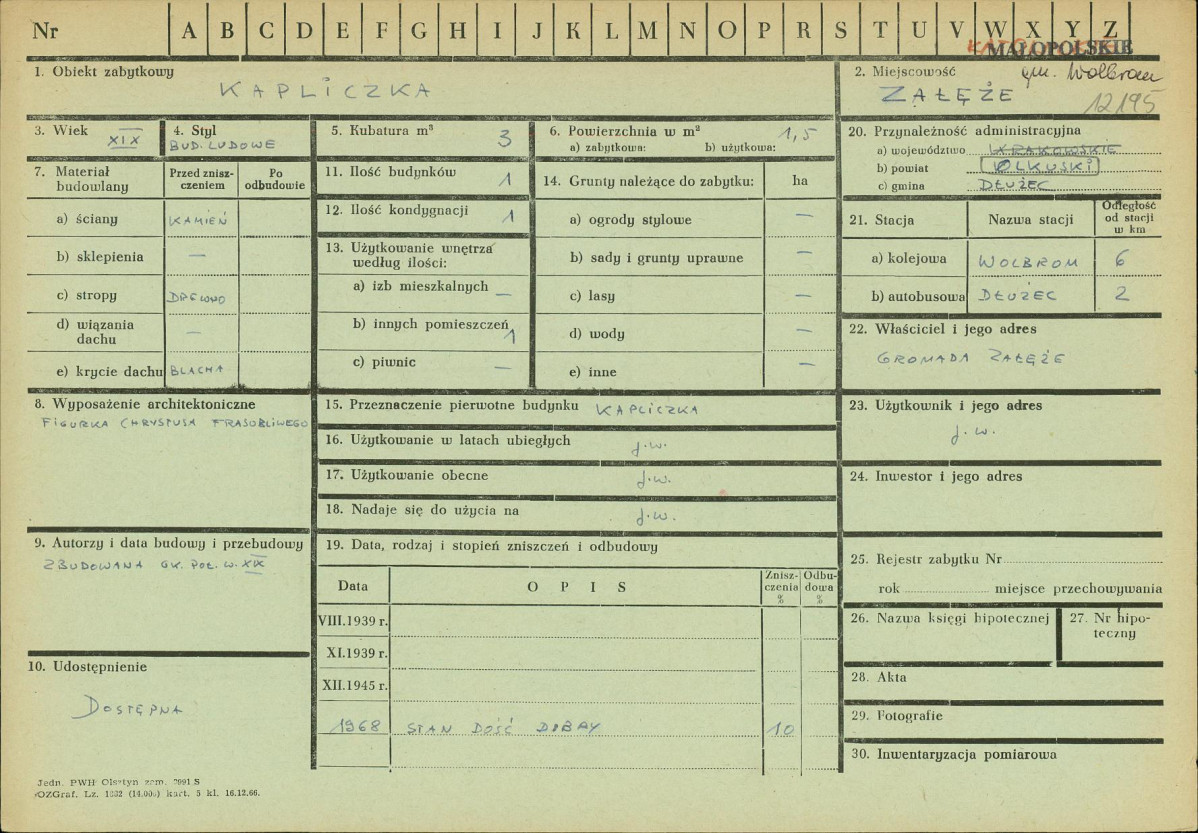 Nr A B C D E F G H I J K L M N O P R S T U V W X Y Z
MAŁOPOLSKIE
1. Obiekt zabytkowy
KAPLICZKA
2. Miejscowość gm. Wolbrom
ZAŁĘŻE
12195
3. Wiek
XIX
4. Styl
BUD. LUDOWE
5. Kubatura m³
3
6. Powierzchnia w m² 1,5
a) zabytkowa: b) użytkowa:
7. Materiał budowlany
Przed zniszczeniem
Po odbudowie
a) ściany KAMIEŃ
b) sklepienia —
c) stropy DREWNO
d) wiązania dachu —
e) krycie dachu BLACHA
8. Wyposażenie architektoniczne
FIGURKA CHRYSTUSA FRASOBLIWEGO
9. Autorzy i data budowy i przebudowy
ZBUDOWANA OK. POŁ. W. XIX
10. Udostępnienie
DOSTĘPNA
11. Ilość budynków 1
12. Ilość kondygnacji 1
13. Użytkowanie wnętrza
według ilości:
a) izb mieszkalnych —
b) innych pomieszczeń 1
c) piwnic —
14. Grunty należące do zabytku: ha
a) ogrody stylowe —
b) sady i grunty uprawne —
c) lasy —
d) wody —
e) inne —
15. Przeznaczenie pierwotne budynku KAPLICZKA
16. Użytkowanie w latach ubiegłych j.w.
17. Użytkowanie obecne j.w.
18. Nadaje się do użycia na j.w.
19. Data, rodzaj i stopień zniszczeń i odbudowy
Data OPIS Zniszczenia % Odbudowa %
VIII.1939 r.
XI.1939 r.
XII.1945 r.
1968 STAN DOŚĆ DOBRY 10
20. Przynależność administracyjna
a) województwo KRAKOWSKIE
b) powiat OLKUSKI
c) gmina DŁUŻEC
21. Stacja Nazwa stacji Odległość od stacji w km
a) kolejowa WOLBROM 6
b) autobusowa DŁUŻEC 2
22. Właściciel i jego adres
GROMADA ZAŁĘŻE
23. Użytkownik i jego adres
j.w.
24. Inwestor i jego adres
25. Rejestr zabytku Nr
rok miejsce przechowywania
26. Nazwa księgi hipotecznej
27. Nr hipoteczny
28. Akta
29. Fotografie
30. Inwentaryzacja pomiarowa
Jedn. PWH Olsztyn zam. 2991 S
OZGraf. Lz. 1332 (14.000) kart. 5 kl. 16.12.66.